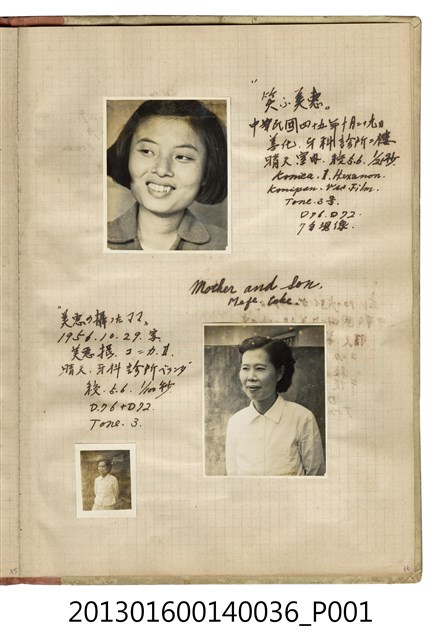 "笑ふ美惠"
中華民國四十五年十月二十九日
善化.牙科診所二樓
晴天 室內. 絞.5.6.
Konica. Ⅱ. Hexanon.
Konipan. Film.
Tone. 3号.
D.76. D.72.
Mother and Son.
Mafe Coke.
"美惠の攝したママ"
1956.10.29.
美惠 コニカ.Ⅱ.
晴天. 牙科診所ベランダ
絞.5.6. 1/100秒
D.76+D.72.
Tone. 3.
201301600140036_P001